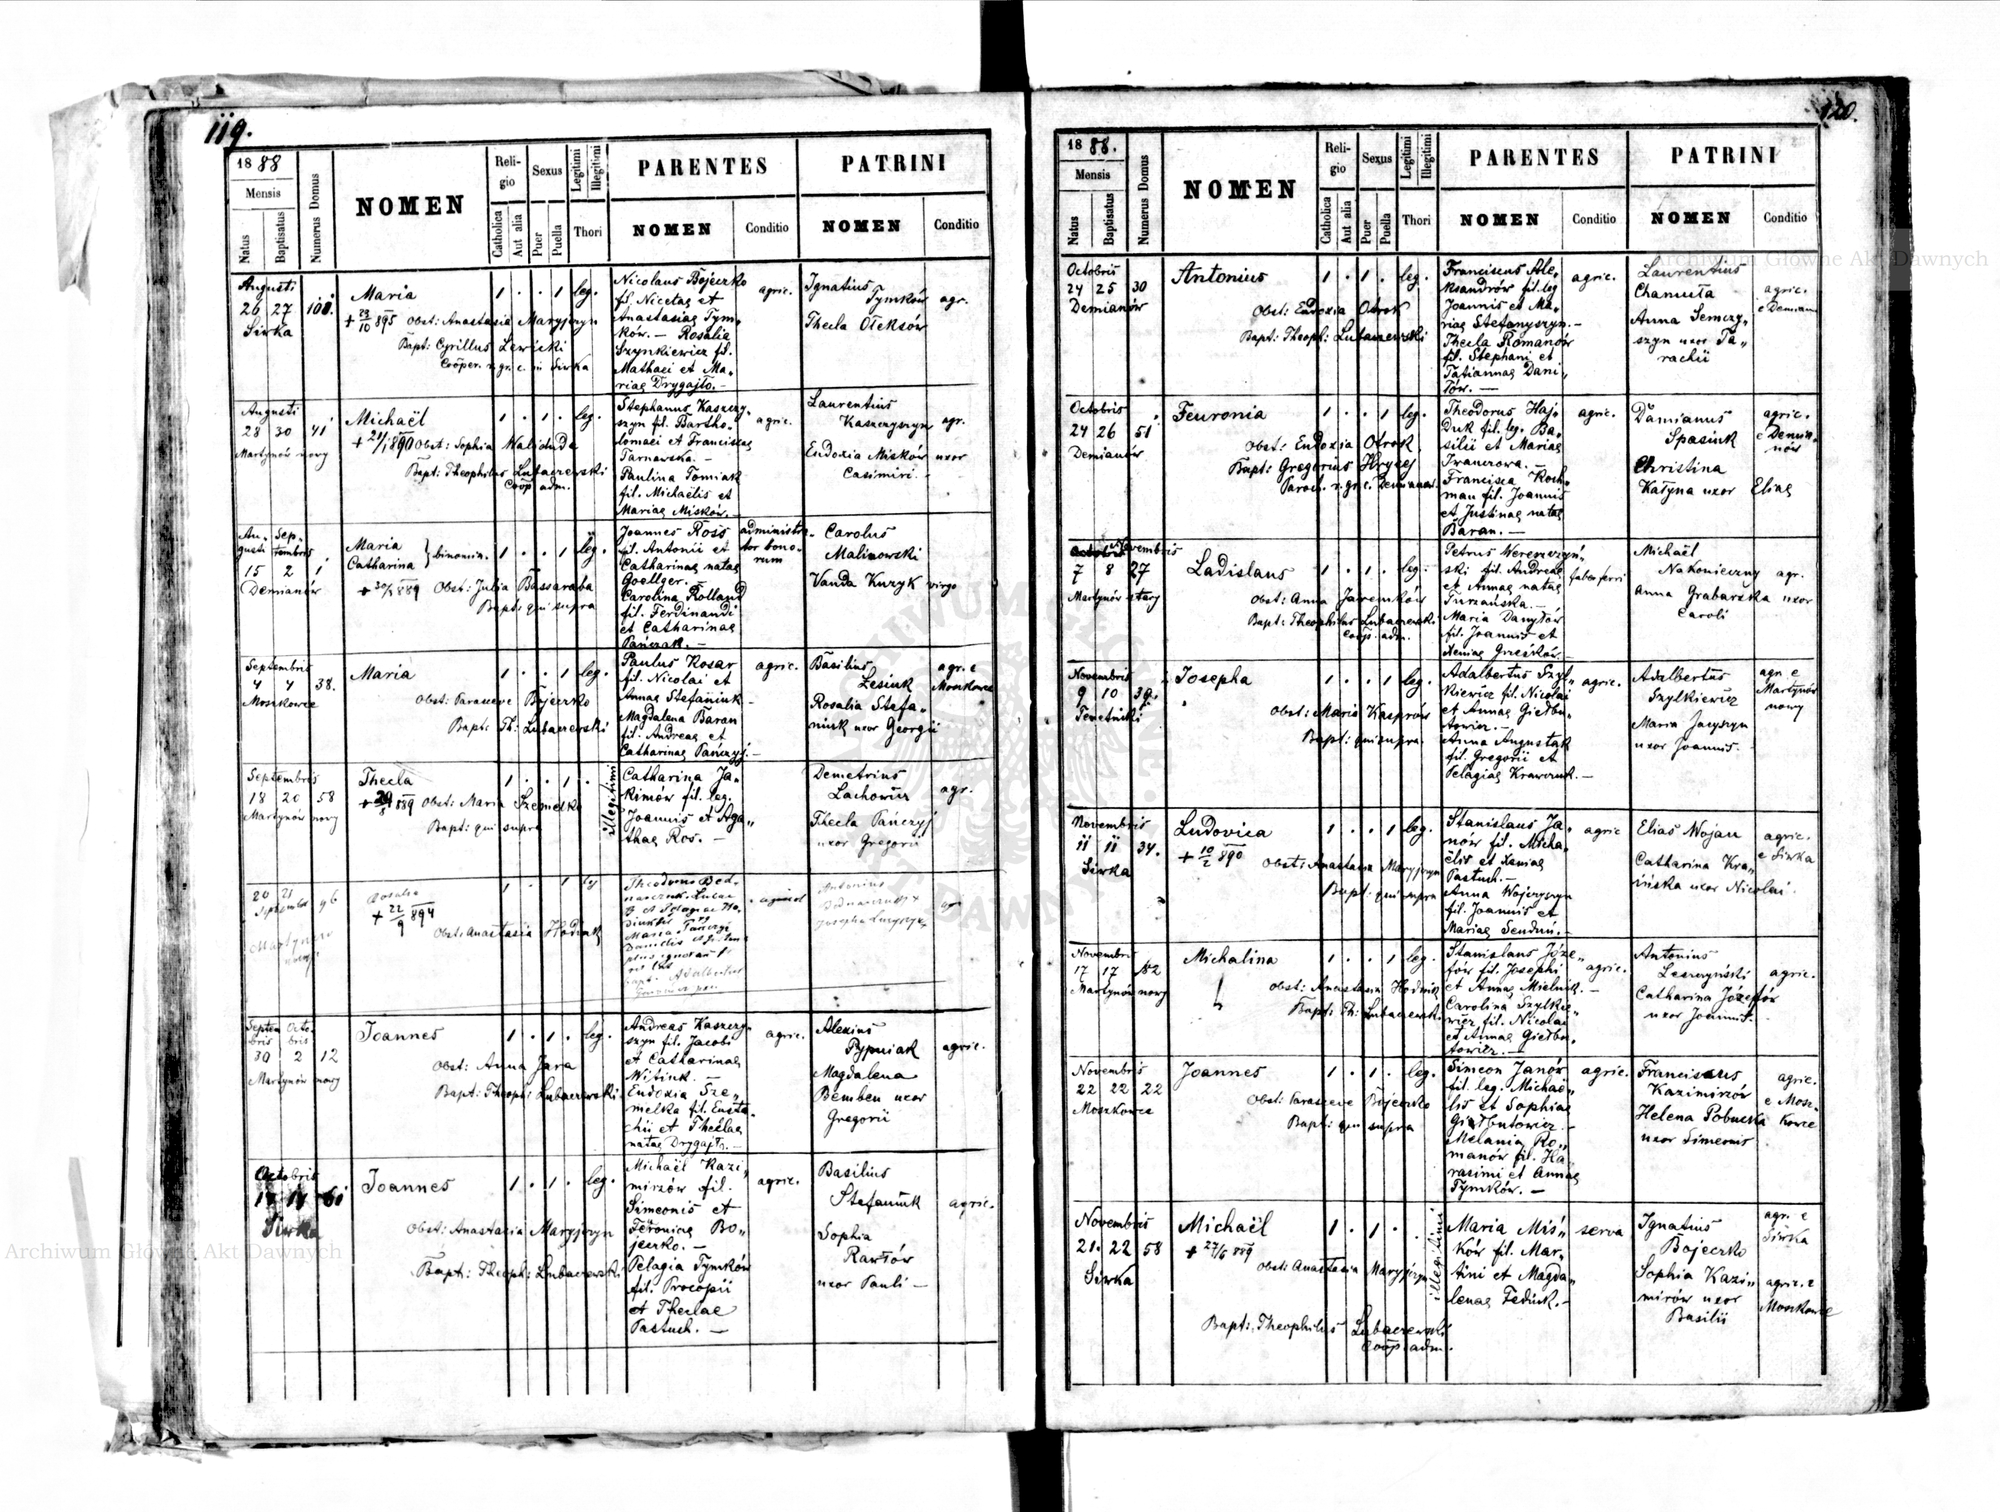 119.
1888
Mensis
Natus
Baptisatus
Numerus Domus
NOMEN
Reli-
gio
Catholica
Aut alia
Sexus
Puer
Puella
Legitimi
Illegitimi
Thori
PARENTES
NOMEN
Conditio
PATRINI
NOMEN
Conditio
Augusti
26 27 100.
Sirka
Maria
Obst: Anastasia Maryjczyn
Bapt: Cyrillus Lewicki
Cooper. r. gr. c. in Sirka
1 . . 1 leg.
Nicolaus Bojeczko
fil. Nicetae et
Anastasiae Tym„
ków. — Rosalia
Szynkiewicz fil.
Mathaei et Ma„
riae Drygajło. —
agric.
Ignatius
Tymków agr.
Thecla Ołeksów
Augusti
28 30 41
Martynów nowy
Michaël
Obst: Sophia Waliduda
Bapt: Theophilus Lubaczewski
Coop. adm.
1 . 1 . leg.
Stephanus Kaszczy„
szyn fil. Bartho„
lomaei et Franciscae
Tarnawska. —
Paulina Tomiak
fil. Michaëlis et
Mariae Misków. —
agric.
Laurentius
Kaszczyszyn agr.
Eudoxia Misków uxor
Casimiri. —
Au- Sep-
gusti tembris
15 2 1
Demianów
Maria
Catharina } binomin.
Obst: Julia Bassaraba
Bapt: qui supra
1 . . 1 leg.
Joannes Ross
fil. Antonii et
Catharinae natae
Goellger.
Carolina Rolland
fil. Ferdinandi
et Catharinae
Pańczak. —
administra-
tor bono-
rum
Carolus
Malinowski
Vanda Kuzyk virgo
Septembris
4 4 38.
Moszkowce
Maria
Obst: Parasceve Bojeczko
Bapt: Th: Lubaczewski
1 . . 1 leg.
Paulus Kosar
fil. Nicolai et
Annae Stefaniuk —
Magdalena Baran
fil. Andreae et
Catharinae Pańczyj. —
agric.
Basilius
Lesiuk
agr. e
Moszkowce
Rosalia Stefa„
niuk uxor Georgii
Septembris
18 20 58
Martynów nowy
Thecla
Obst: Maria Szemełko
Bapt: qui supra
1 . . 1 .
illegitimi
Catharina Ja„
kimów fil. leg.
Joannis et Aga„
thae Ros. —
Demetrius
Lachowicz agr.
Thecla Pańczyj
uxor Gregorii
20 21
Septembr 96
Martynów
nowy
Rosalia
Obst: Anastasia Hodniak
1 . . 1 leg
Antonius
Septem Octo-
bris bris
30 2 12
Martynów nowy
Joannes
Obst: Anna Jara
Bapt: Theoph: Lubaczewski
1 . 1 . leg.
Andreas Kaszczy„
szyn fil. Jacobi
et Catharinae
Witiuk. —
Eudoxia Sze„
mełka fil. Eusta„
chii et Theclae
natae Drygajło. —
agric.
Alexius
Pypniak agric.
Magdalena
Bemben uxor
Gregorii
Octobris
17 17 61
Sirka
Joannes
Obst: Anastasia Maryjczyn
Bapt: Theoph: Lubaczewski
1 . 1 . leg.
Michaël Kazi„
mirzów fil.
Simeonis et
Feroniae Bo„
jeczko. —
Pelagia Tymków
fil. Procopii
et Theclae
Pastuch. —
agric.
Basilius
Stefaniuk agric.
Sophia
Rawłów
uxor Pauli —
120.
1888.
Mensis
Natus
Baptisatus
Numerus Domus
NOMEN
Reli-
gio
Catholica
Aut alia
Sexus
Puer
Puella
Legitimi
Illegitimi
Thori
PARENTES
NOMEN
Conditio
PATRINI
NOMEN
Conditio
Octobris
24 25 30
Demianów
Antonius
Obst: Eudoxia Otrok
Bapt: Theoph: Lubaczewski
1 . 1 . leg.
Franciscus Ale„
ksandrów fil. leg.
Joannis et Ma„
riae Stefanyszyn. —
Thecla Romanów
fil. Stephani et
Tatiannae Dani„
łów. —
agric.
Laurentius
Chamuta
agric.
e Demian
Anna Semczy„
szyn uxor Ta„
rachii
Octobris
24 26 51
Demianów
Feuronia
Obst: Eudoxia Otrok
Bapt: Gregorius Hrycej
Paroch. r. gr. c. Demianów.
1 . . 1 leg.
Theodorus Haj„
duk fil. leg. Ba„
silii et Mariae
Iwanciowa. —
Francisca Koch„
man fil. Joannis
et Justinae natae
Baran. —
agric.
Damianus
Spasiuk
agric.
e Demia„
nów
Christina
Katyna uxor Eliae
Novembris
7 8 27
Martynów stary
Ladislaus
Obst: Anna Jaremków
Bapt: Theophilus Lubaczewski
Coop. adm.
1 . 1 . leg.
Petrus Wereszczyń„
ski fil. Andreae
et Annae natae
Turzańska. —
Maria Danyłów
fil. Joannis et
Xeniae Grześków. —
faber ferri
Michaël
Nakonieczny agr.
Anna Grabarzka uxor
Caroli
Novembris
9 10 39.
Temetniki
Josepha
Obst: Maria Kasprów
Bapt: qui supra.
1 . . 1 leg.
Adalbertus Szył„
kiewicz fil. Nicolai
et Annae Giełbu„
towicz. —
Anna Augustak
fil. Gregorii et
Pelagiae Krawczuk. —
agric.
Adalbertus
Szyłkiewicz
agr. e
Martynów
nowy
Maria Jacyszyn
uxor Joannis.
Novembris
11 11 34.
Sirka
Ludovica
Obst: Anastasia Maryjczyn
Bapt: qui supra
1 . . 1 leg.
Stanislaus Ja„
nów fil. Micha„
ëlis et Xeniae
Pastuch. —
Anna Wojczyszyn
fil. Joannis et
Mariae Senduń. —
agric
Elias Wojan
agric.
e Sirka
Catharina Kra„
ińska uxor Nicolai.
Novembris
17 17 82
Martynów nowy
Michalina
Obst: Anastasia Hodniak
Bapt: Th: Lubaczewski.
1 . . 1 leg.
Stanislaus Józe„
fów fil. Josephi
et Annae Mielnik. —
Carolina Szyłkie„
wicz fil. Nicolai
et Annae Giełbu„
towicz. —
agric.
Antonius
Leszczyński agric.
Catharina Józefów
uxor Joannis.
Novembris
22 22 22
Moszkowce
Joannes
Obst: Parasceve Bojeczko
Bapt: qui supra
1 . 1 . leg.
Simeon Janów
fil. leg. Michaë„
lis et Sophiae
Giełbutowicz. —
Melania Ro„
manów fil. Ha„
rasimi et Annae
Tymków. —
agric.
Franciscus
Kazimirzów
agric.
e Mosz„
kowce
Helena Pobuczka
uxor Simeonis
Novembris
21. 22 58
Sirka
Michaël
Obst: Anastasia Maryjczyn
Bapt: Theophilus Lubaczewski
Coop. adm.
1 . 1 .
illegitimi
Maria Miś„
ków fil. Mar„
tini et Magda„
lenae Fediuk. —
serva
Ignatius
Bojeczko
agr. e
Sirka
Sophia Kazi„
mirów uxor
Basilii
agric. e
Moszkowce
Archiwum Główne Akt Dawnych
Archiwum Główne Akt Dawnych